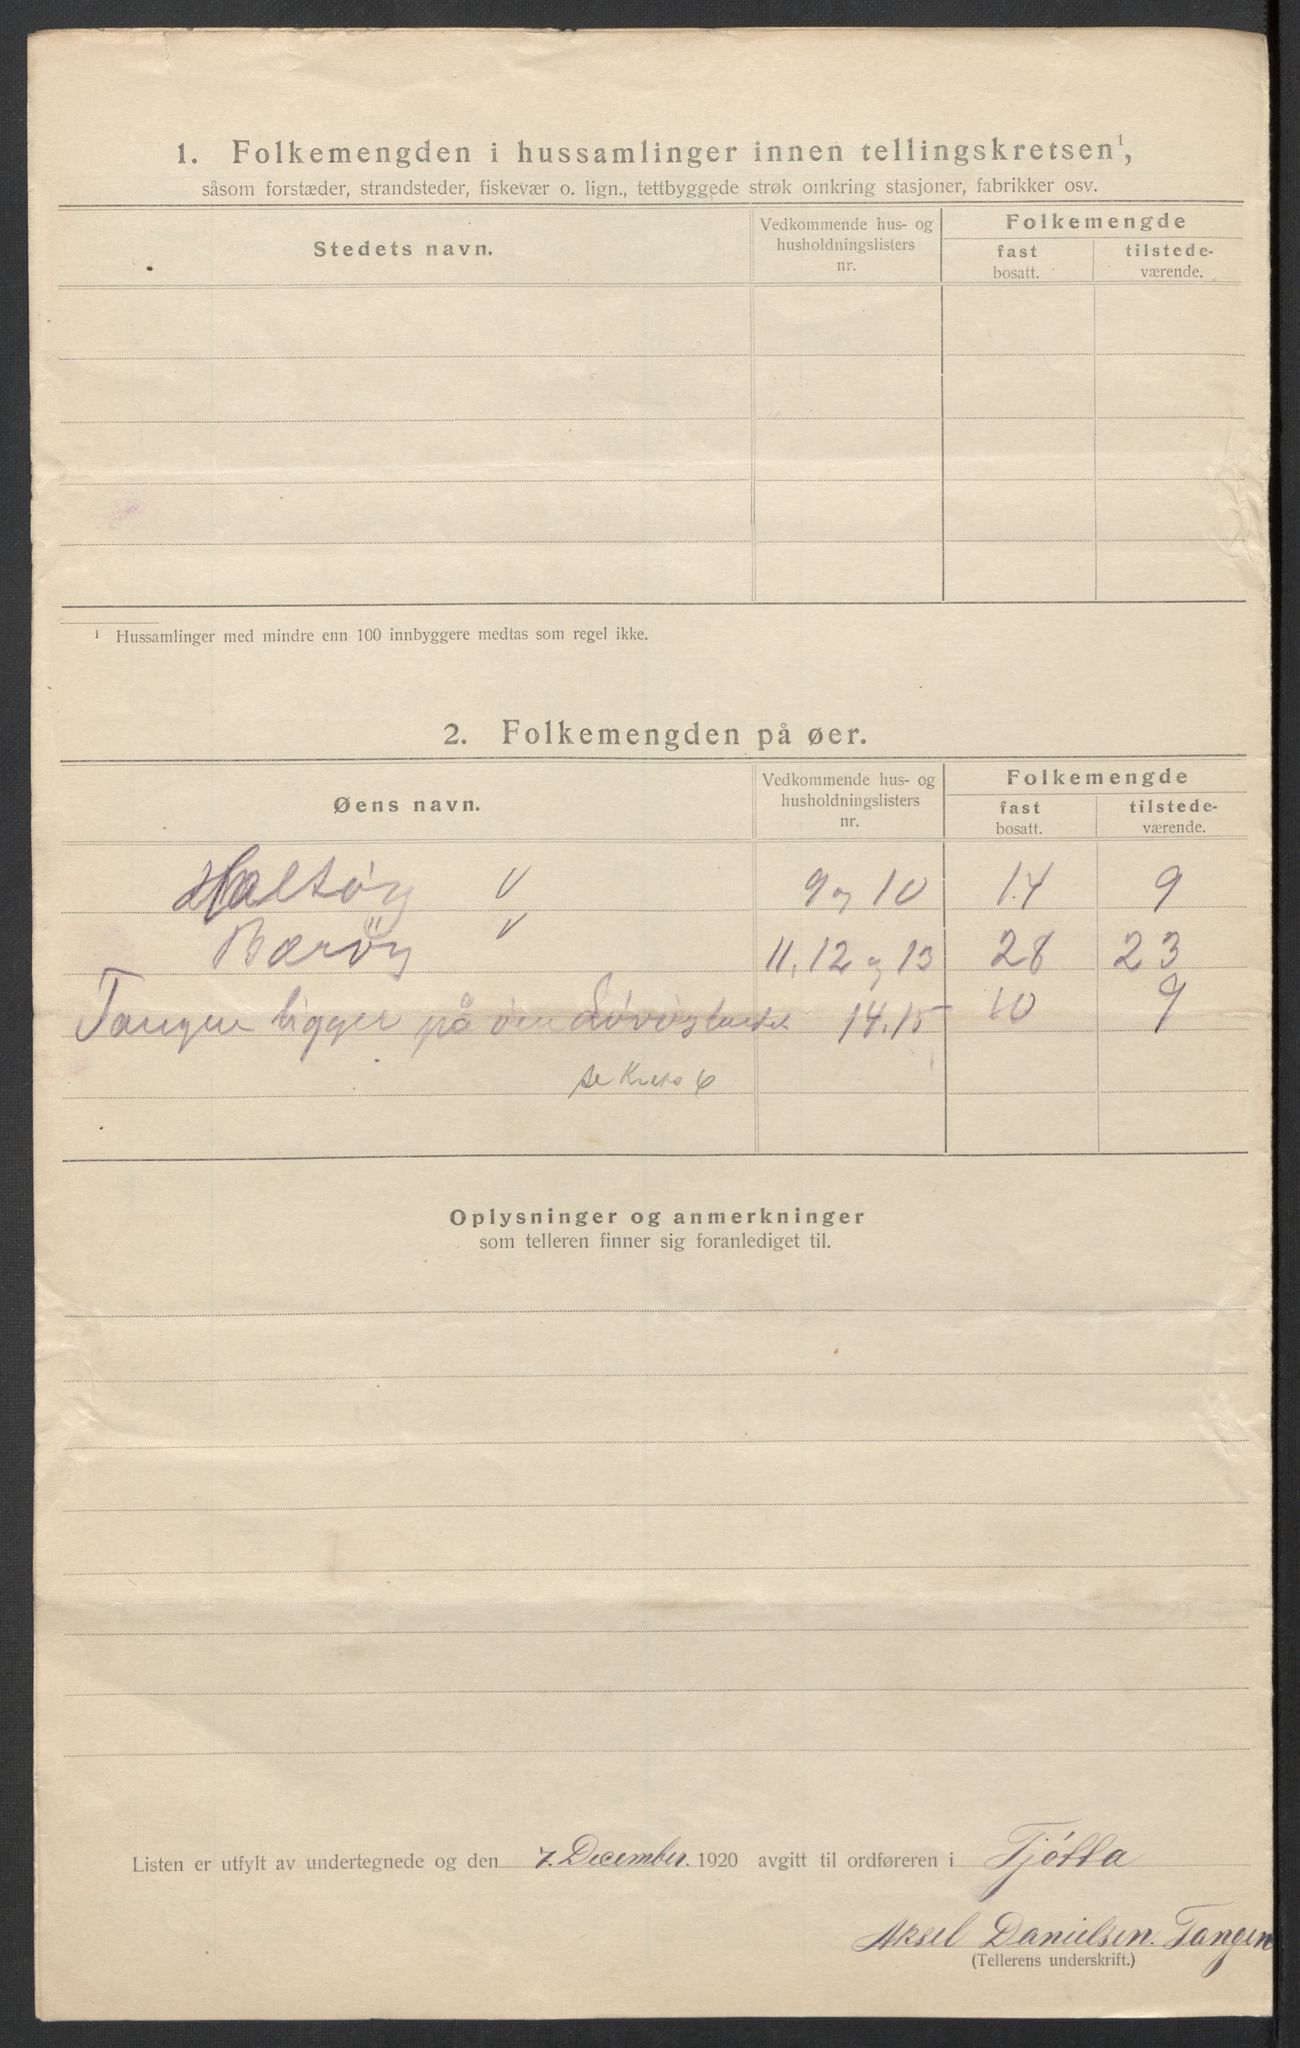 1. Folkemengden i hussamlinger innen tellingskretsen¹,
såsom forstæder, strandsteder, fiskevær o. lign., tettbyggede strøk omkring stasjoner, fabrikker osv.
Stedets navn. Vedkommende hus- og husholdningslisters nr. Folkemengde
fast bosatt. tilstede-værende.
¹ Hussamlinger med mindre enn 100 innbyggere medtas som regel ikke.
2. Folkemengden på øer.
Øens navn. Vedkommende hus- og husholdningslisters nr. Folkemengde
fast bosatt. tilstede-værende.
9 og 10 14 9
Bærøy 11, 12 og 13 28 23
Tangen ligger på øen 14. 15 10 9
se Krets 6
Oplysninger og anmerkninger
som telleren finner sig foranlediget til.
Listen er utfylt av undertegnede og den 7. December. 1920 avgitt til ordføreren i Tjøtta
Aksel Danielsen. Tangen
(Tellerens underskrift.)